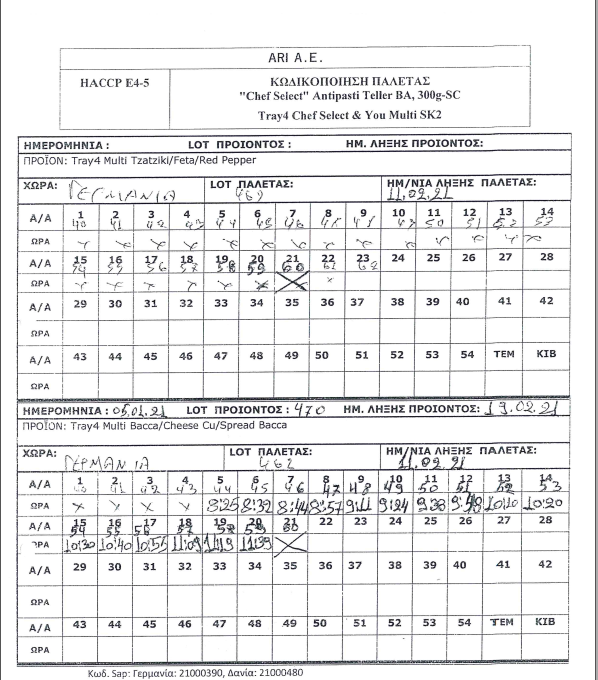 ARI A.E.
HACCP E4-5
ΚΩΔΙΚΟΠΟΙΗΣΗ ΠΑΛΕΤΑΣ
"Chef Select" Antipasti Teller BA, 300g-SC
Tray4 Chef Select & You Multi SK2
ΗΜΕΡΟΜΗΝΙΑ : LOT ΠΡΟΙΟΝΤΟΣ : ΗΜ. ΛΗΞΗΣ ΠΡΟΙΟΝΤΟΣ:
ΠΡΟΪΟΝ: Tray4 Multi Tzatziki/Feta/Red Pepper
ΧΩΡΑ: ΓΕΡΜΑΝΙΑ LOT ΠΑΛΕΤΑΣ: ΗΜ/ΝΙΑ ΛΗΞΗΣ ΠΑΛΕΤΑΣ: 11.02.21
Α/Α 1 2 3 4 5 6 7 8 9 10 11 12 13 14
40 41 42 43 44 45 46 50 51 52 53
ΩΡΑ
Α/Α 15 16 17 18 19 20 21 22 23 24 25 26 27 28
54 55 56 57 58 59 60 61 62
ΩΡΑ
Α/Α 29 30 31 32 33 34 35 36 37 38 39 40 41 42
ΩΡΑ
Α/Α 43 44 45 46 47 48 49 50 51 52 53 54 ΤΕΜ ΚΙΒ
ΩΡΑ
ΗΜΕΡΟΜΗΝΙΑ : 05.01.21 LOT ΠΡΟΙΟΝΤΟΣ : 470 ΗΜ. ΛΗΞΗΣ ΠΡΟΙΟΝΤΟΣ: 19.02.21
ΠΡΟΪΟΝ: Tray4 Multi Bacca/Cheese Cu/Spread Bacca
ΧΩΡΑ: ΓΕΡΜΑΝΙΑ LOT ΠΑΛΕΤΑΣ: 462 ΗΜ/ΝΙΑ ΛΗΞΗΣ ΠΑΛΕΤΑΣ: 11.02.21
Α/Α 1 2 3 4 5 6 7 8 9 10 11 12 13 14
40 41 42 43 44 45 46 47 48 49 50 51 52 53
ΩΡΑ x x x x 8:25 8:32 8:44 8:57 9:11 9:24 9:38 9:49 10:10 10:20
Α/Α 15 16 17 18 19 20 21 22 23 24 25 26 27 28
54 55 56 57 58 59 60
ΩΡΑ 10:30 10:40 10:55 11:09 11:19 11:39
Α/Α 29 30 31 32 33 34 35 36 37 38 39 40 41 42
ΩΡΑ
Α/Α 43 44 45 46 47 48 49 50 51 52 53 54 ΤΕΜ ΚΙΒ
ΩΡΑ
Κωδ. Sap: Γερμανία: 21000390, Δανία: 21000480